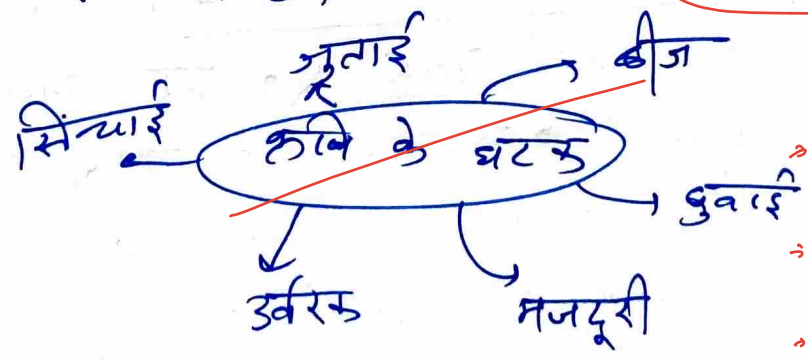 जुताई
बीज
सिंचाई
कृषि के घटक
बुवाई
उर्वरक
मजदूरी